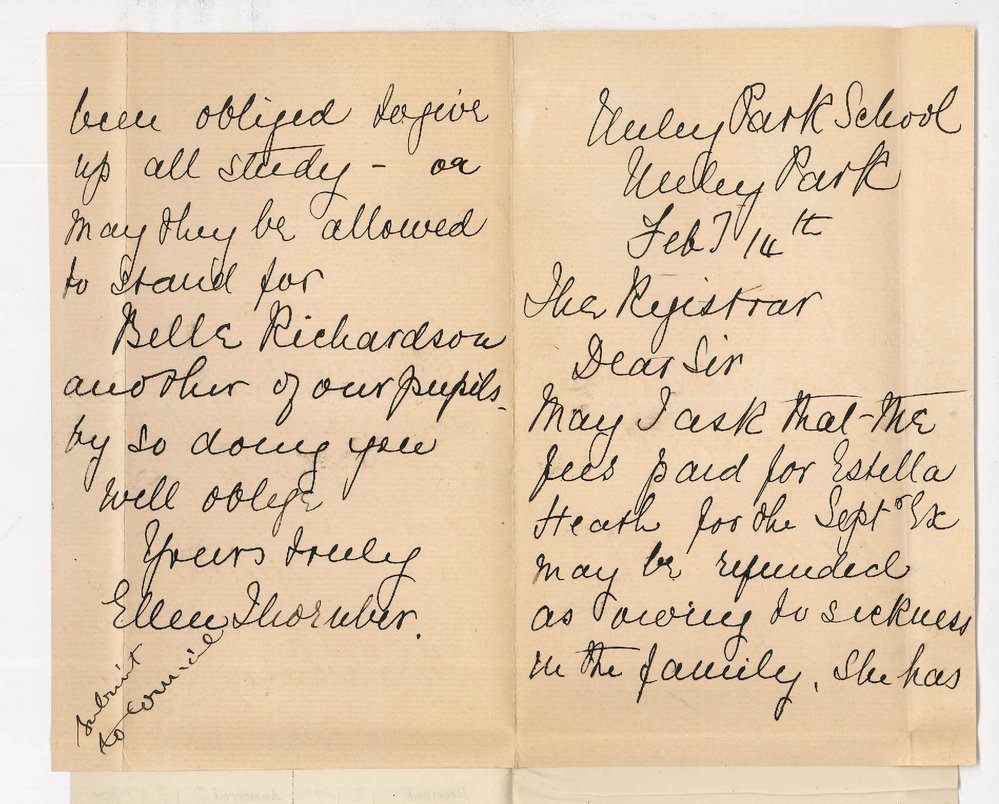 Unley Park School
Unley Park
Feby 14th
The Registrar
Dear Sir
May I ask that the
fees paid for Estella
Heath for the Septr Ex
may be refunded
as owing to sickness
in the family, she has
been obliged to give
up all study - or
may they be allowed
to stand for
Belle Richardson
another of our pupils -
by so doing you
will oblige
Yours truly
Ellen Thornber.
submit
to council